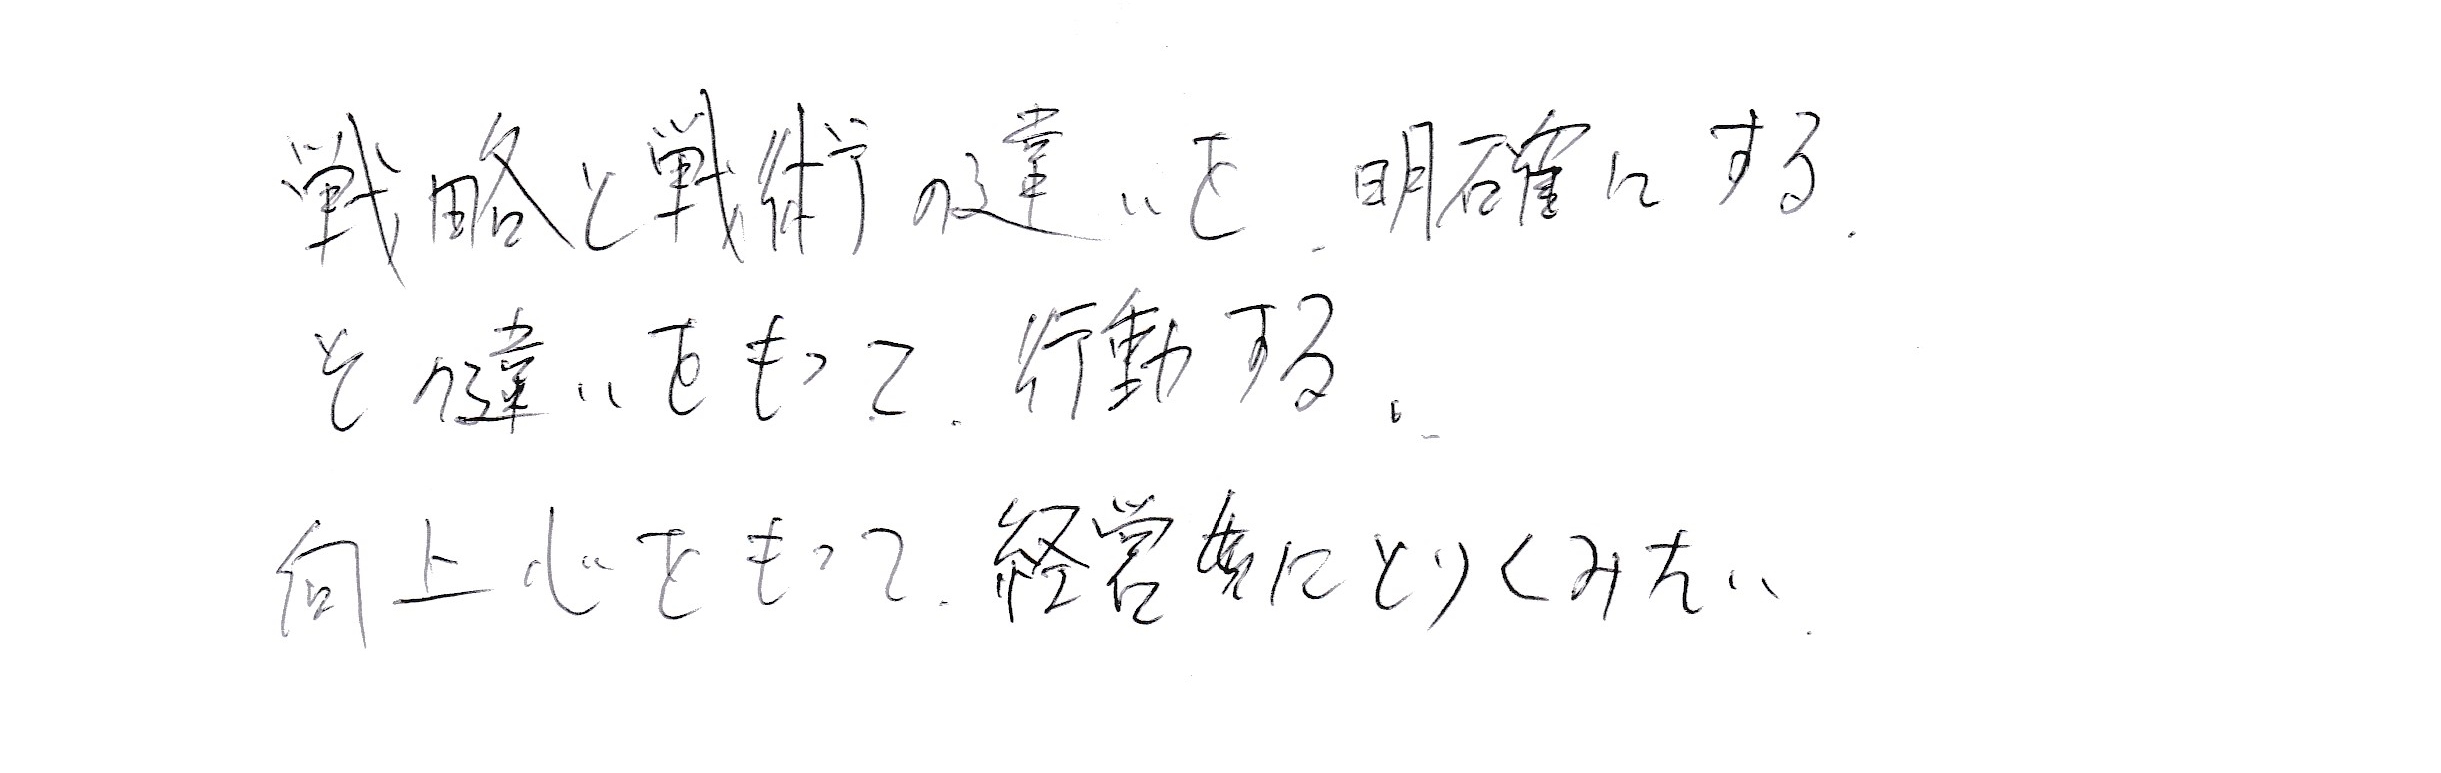 戦略と戦術の違いを、明確にする。
その違いをもって、行動する。
向上心をもって、経営にとりくみたい。